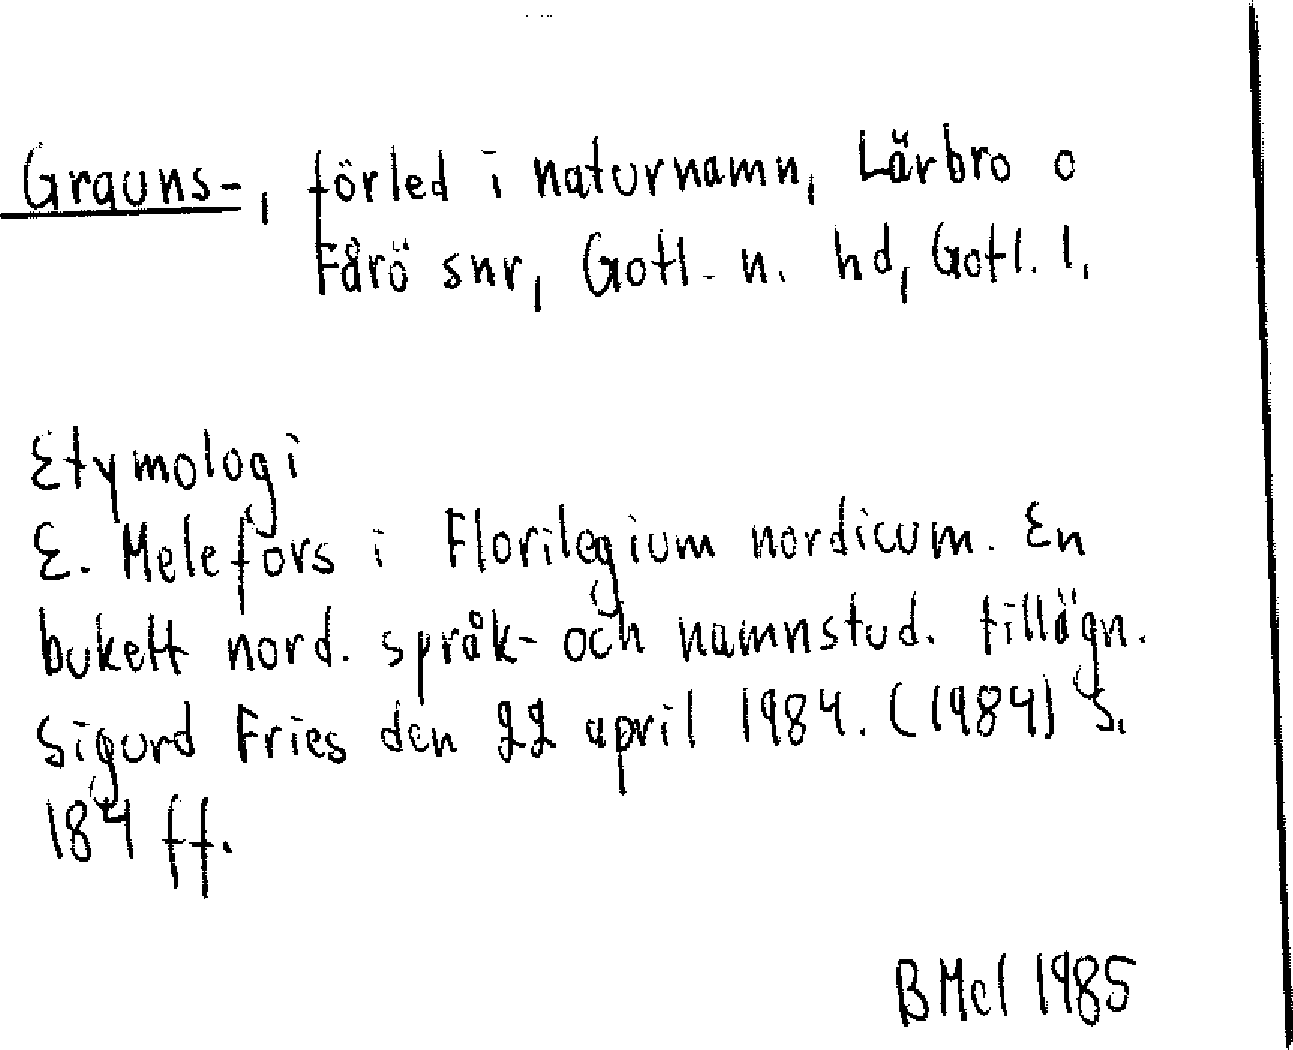 Grauns-, förled i naturnamn, Lärbro o
Fårö snr, Gotl. n. hd, Gotl. l.
Etymologi
E. Melefors i Florilegium nordicum. En
bukett nord. språk- och namnstud. tillägn.
Sigurd Fries den 22 april 1984. (1984) S.
184 ff.
BMel 1985